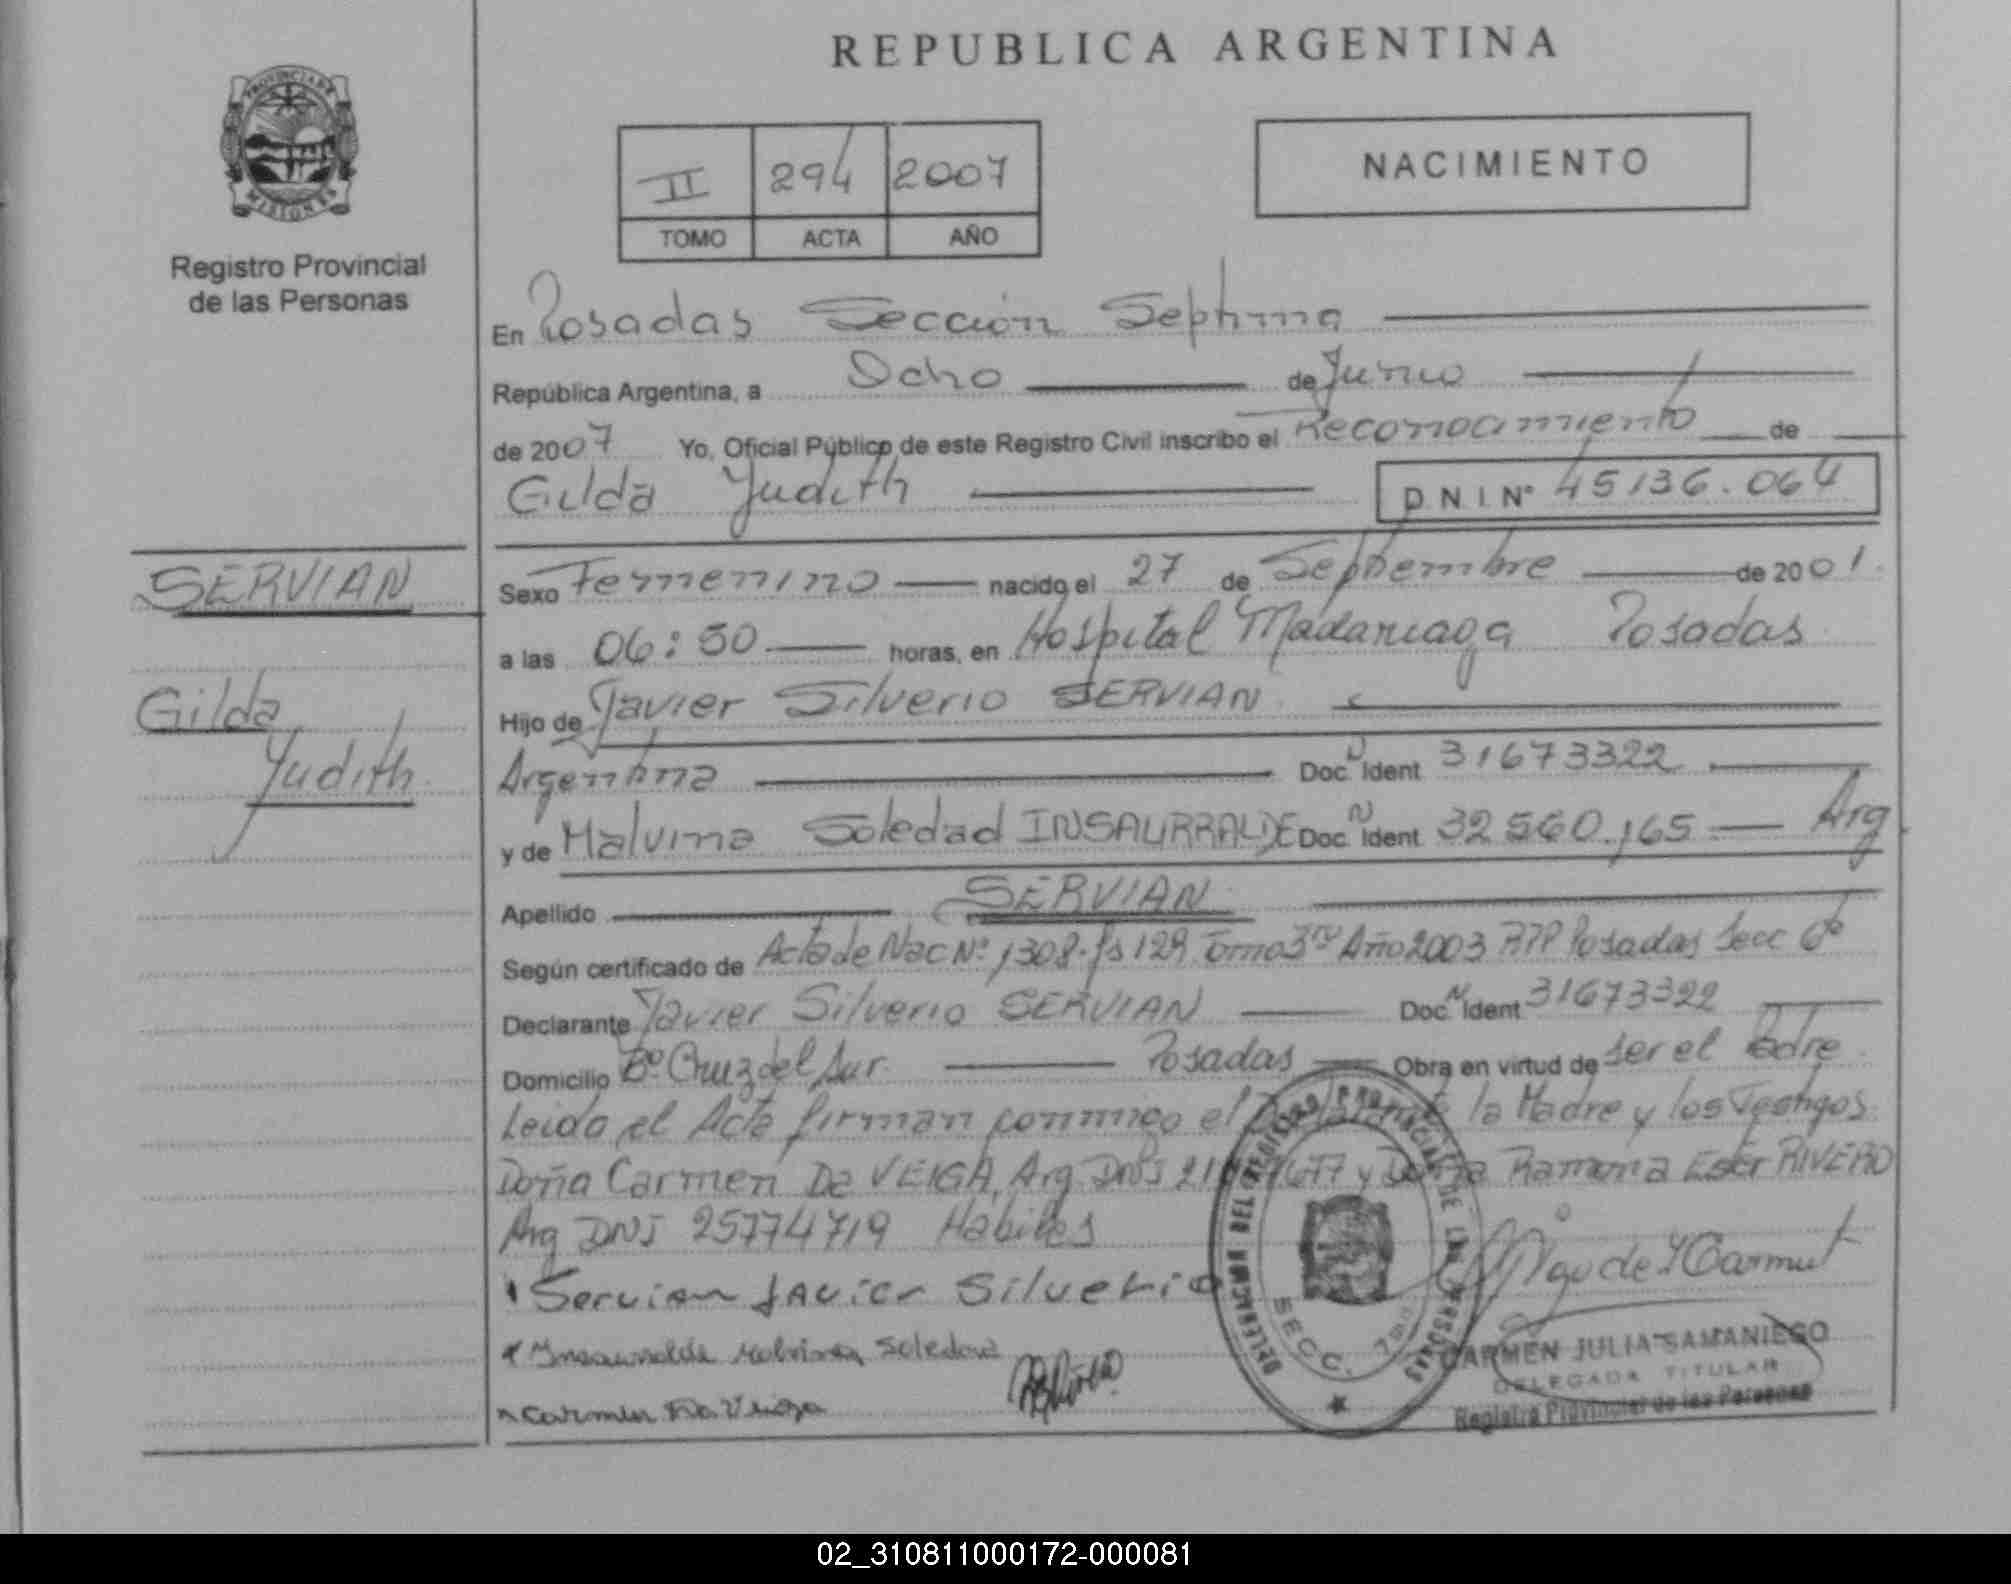 REPUBLICA ARGENTINA
PROVINCIA DE
MISIONES
Registro Provincial
de las Personas
II 294 2007
TOMO ACTA AÑO
NACIMIENTO
En Posadas Sección Septima
República Argentina, a Ocho de Junio
de 2007 Yo, Oficial Público de este Registro Civil inscribo el Reconocimiento de
Gilda Judith D.N.I. Nº 45136.064
SERVIAN
Gilda
Judith
Sexo Femenino nacido el 27 de Septiembre de 2001.
a las 06:50 horas, en Hospital Madariaga Posadas
Hijo de Javier Silverio SERVIAN
Argentina Doc. N Ident 31673322
y de Malvina Soledad INSAURRALDE Doc. N Ident 32560.165 Arg
Apellido SERVIAN
Según certificado de Acta de Nac Nº 1308. fs 129 Tomo 3ro Año 2003 RPP Posadas Secc 6º
Declarante Javier Silverio SERVIAN Doc. N Ident 31673322
Domicilio Bº Cruz del Sur. Posadas Obra en virtud de ser el Padre
Leida el Acta firman conmigo el Declarante la Madre y los Testigos
Doña Carmen Da VEIGA, Arg DNI y Doña Ramona Ester RIVERO
Arg DNI 25774719 Habiles
Servian Javier Silverio
Insaurralde Malvina Soledad
Carmen Da Veiga
DELEGACION DEL REGISTRO PROVINCIAL DE LAS PERSONAS
SECC. 7ma
CARMEN JULIA SAMANIEGO
DELEGADA TITULAR
Registro Provincial de las Personas
02_310811000172-000081